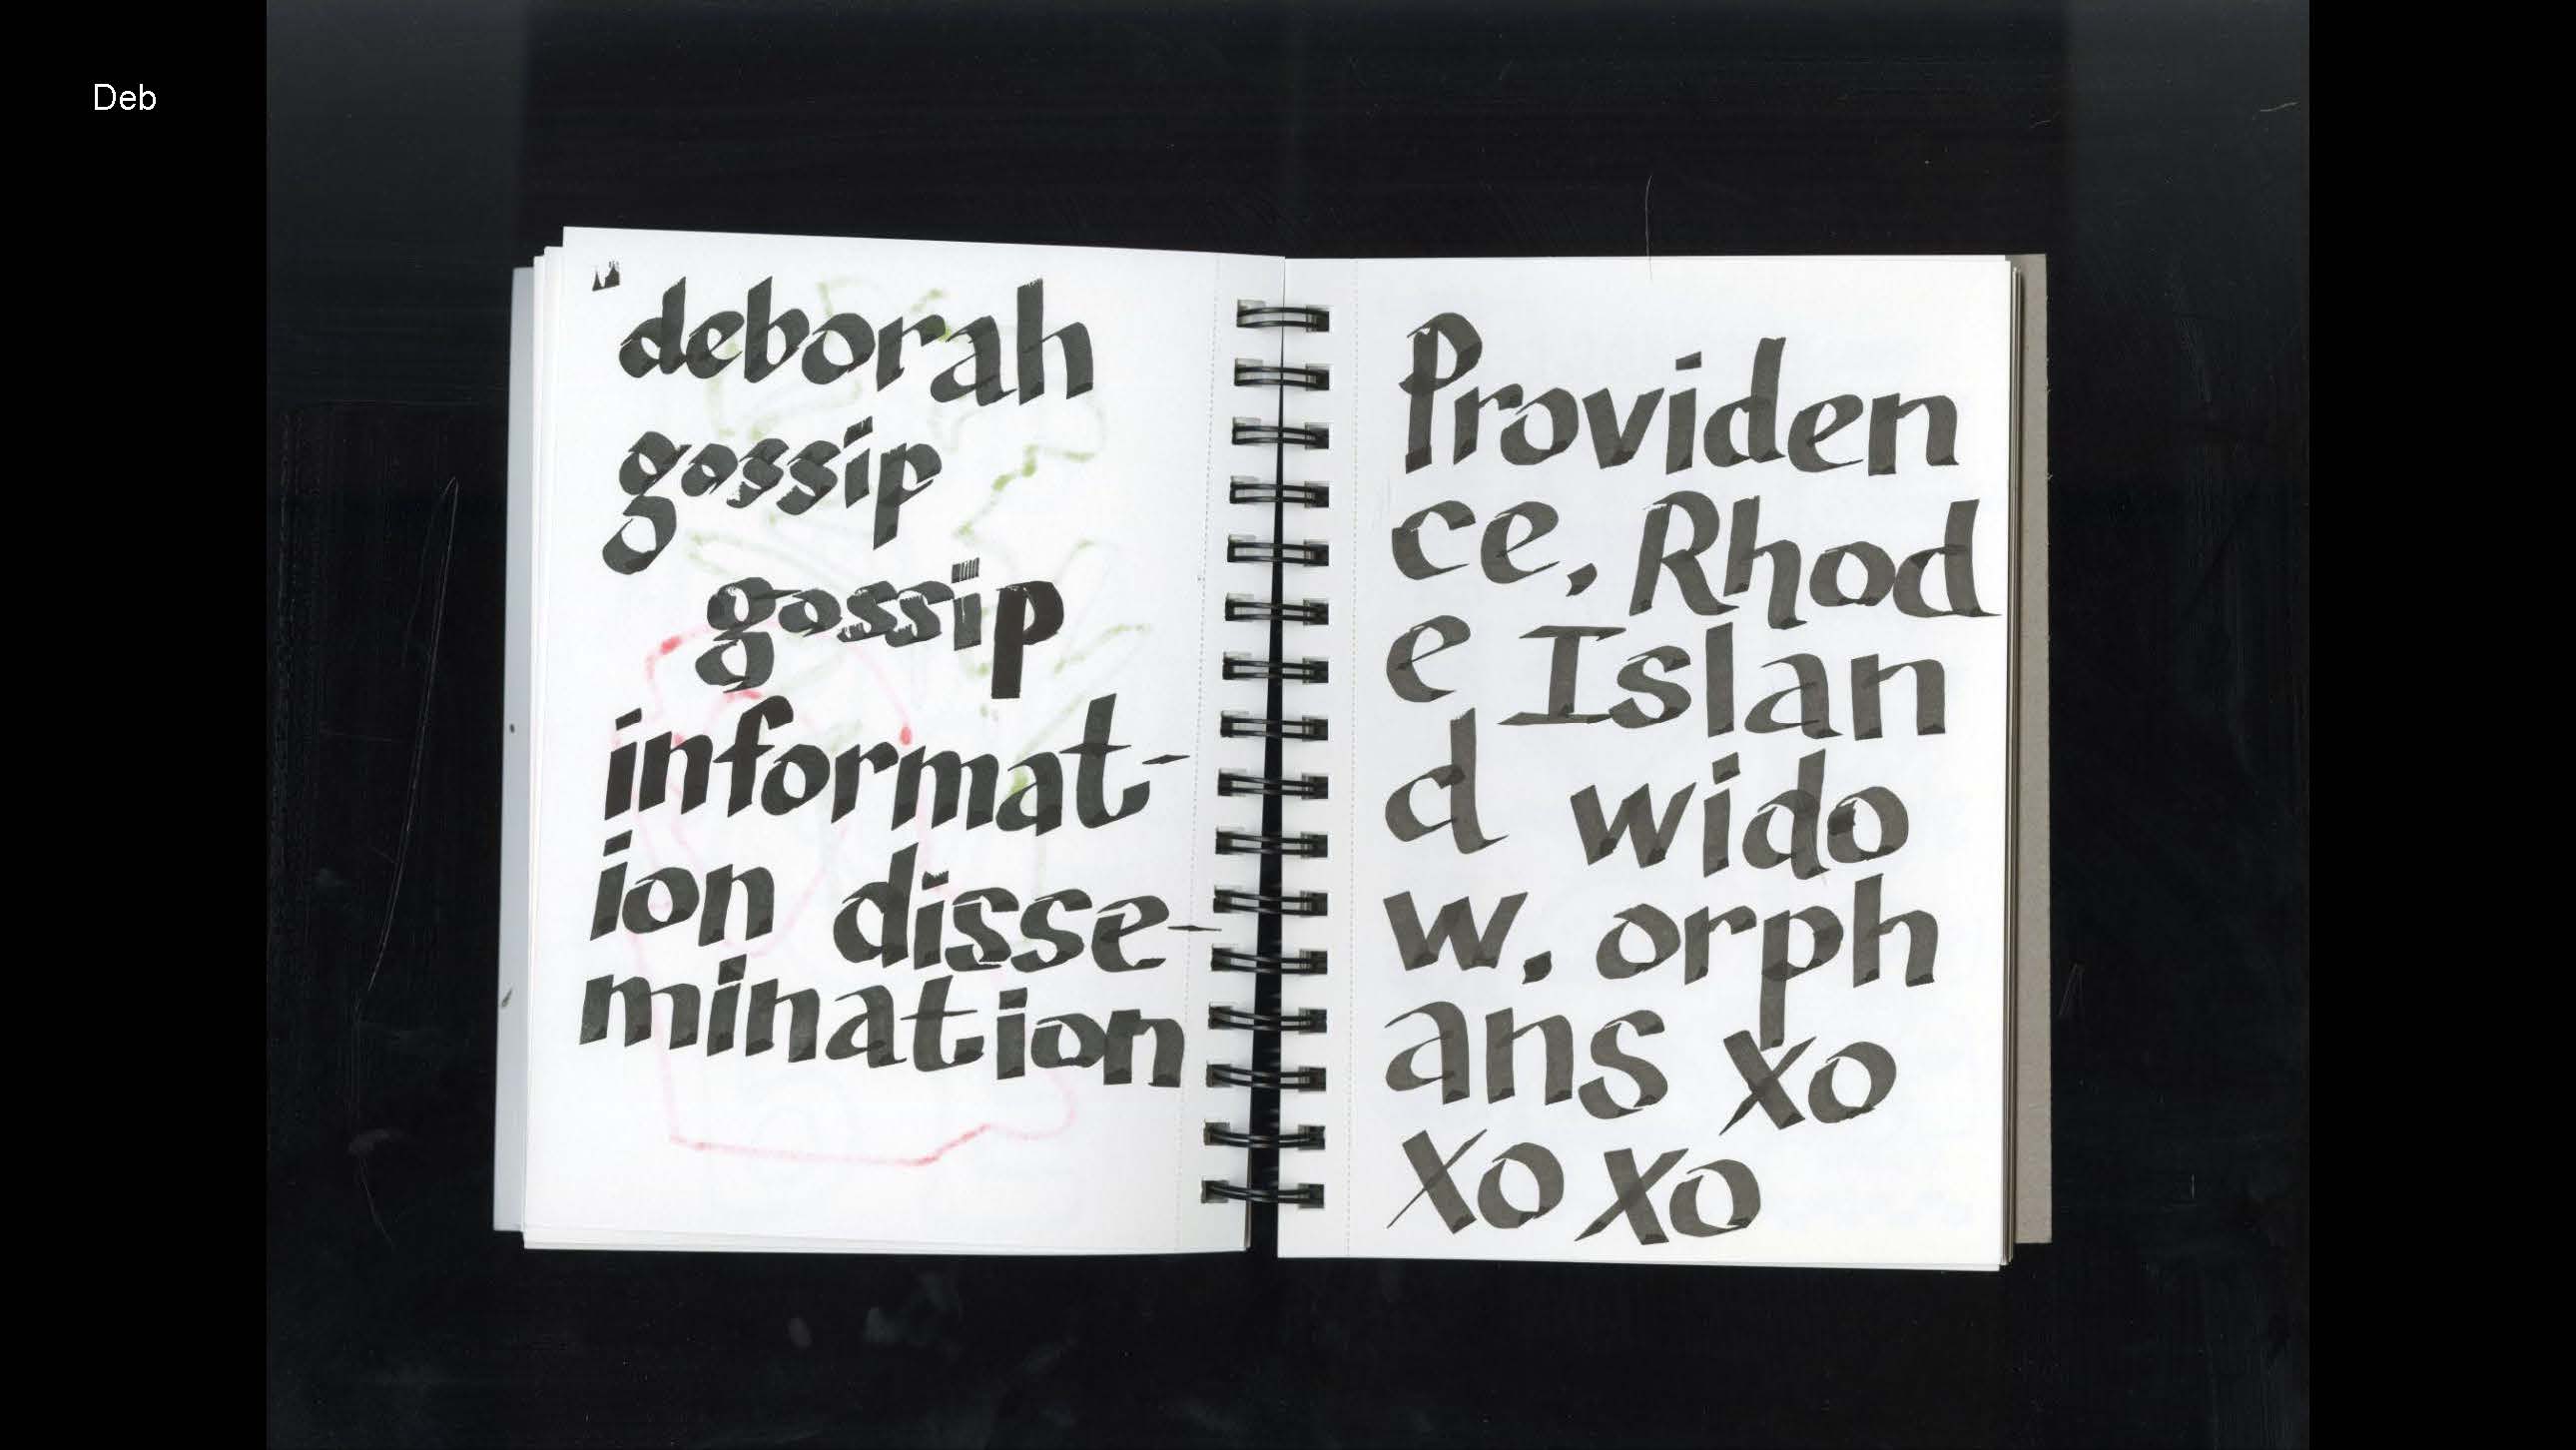 Deb
deborah
gossip
gossip
informat-
ion disse-
mination
Providen
ce, Rhod
e Islan
d wido
w. orph
ans xo
xo xo